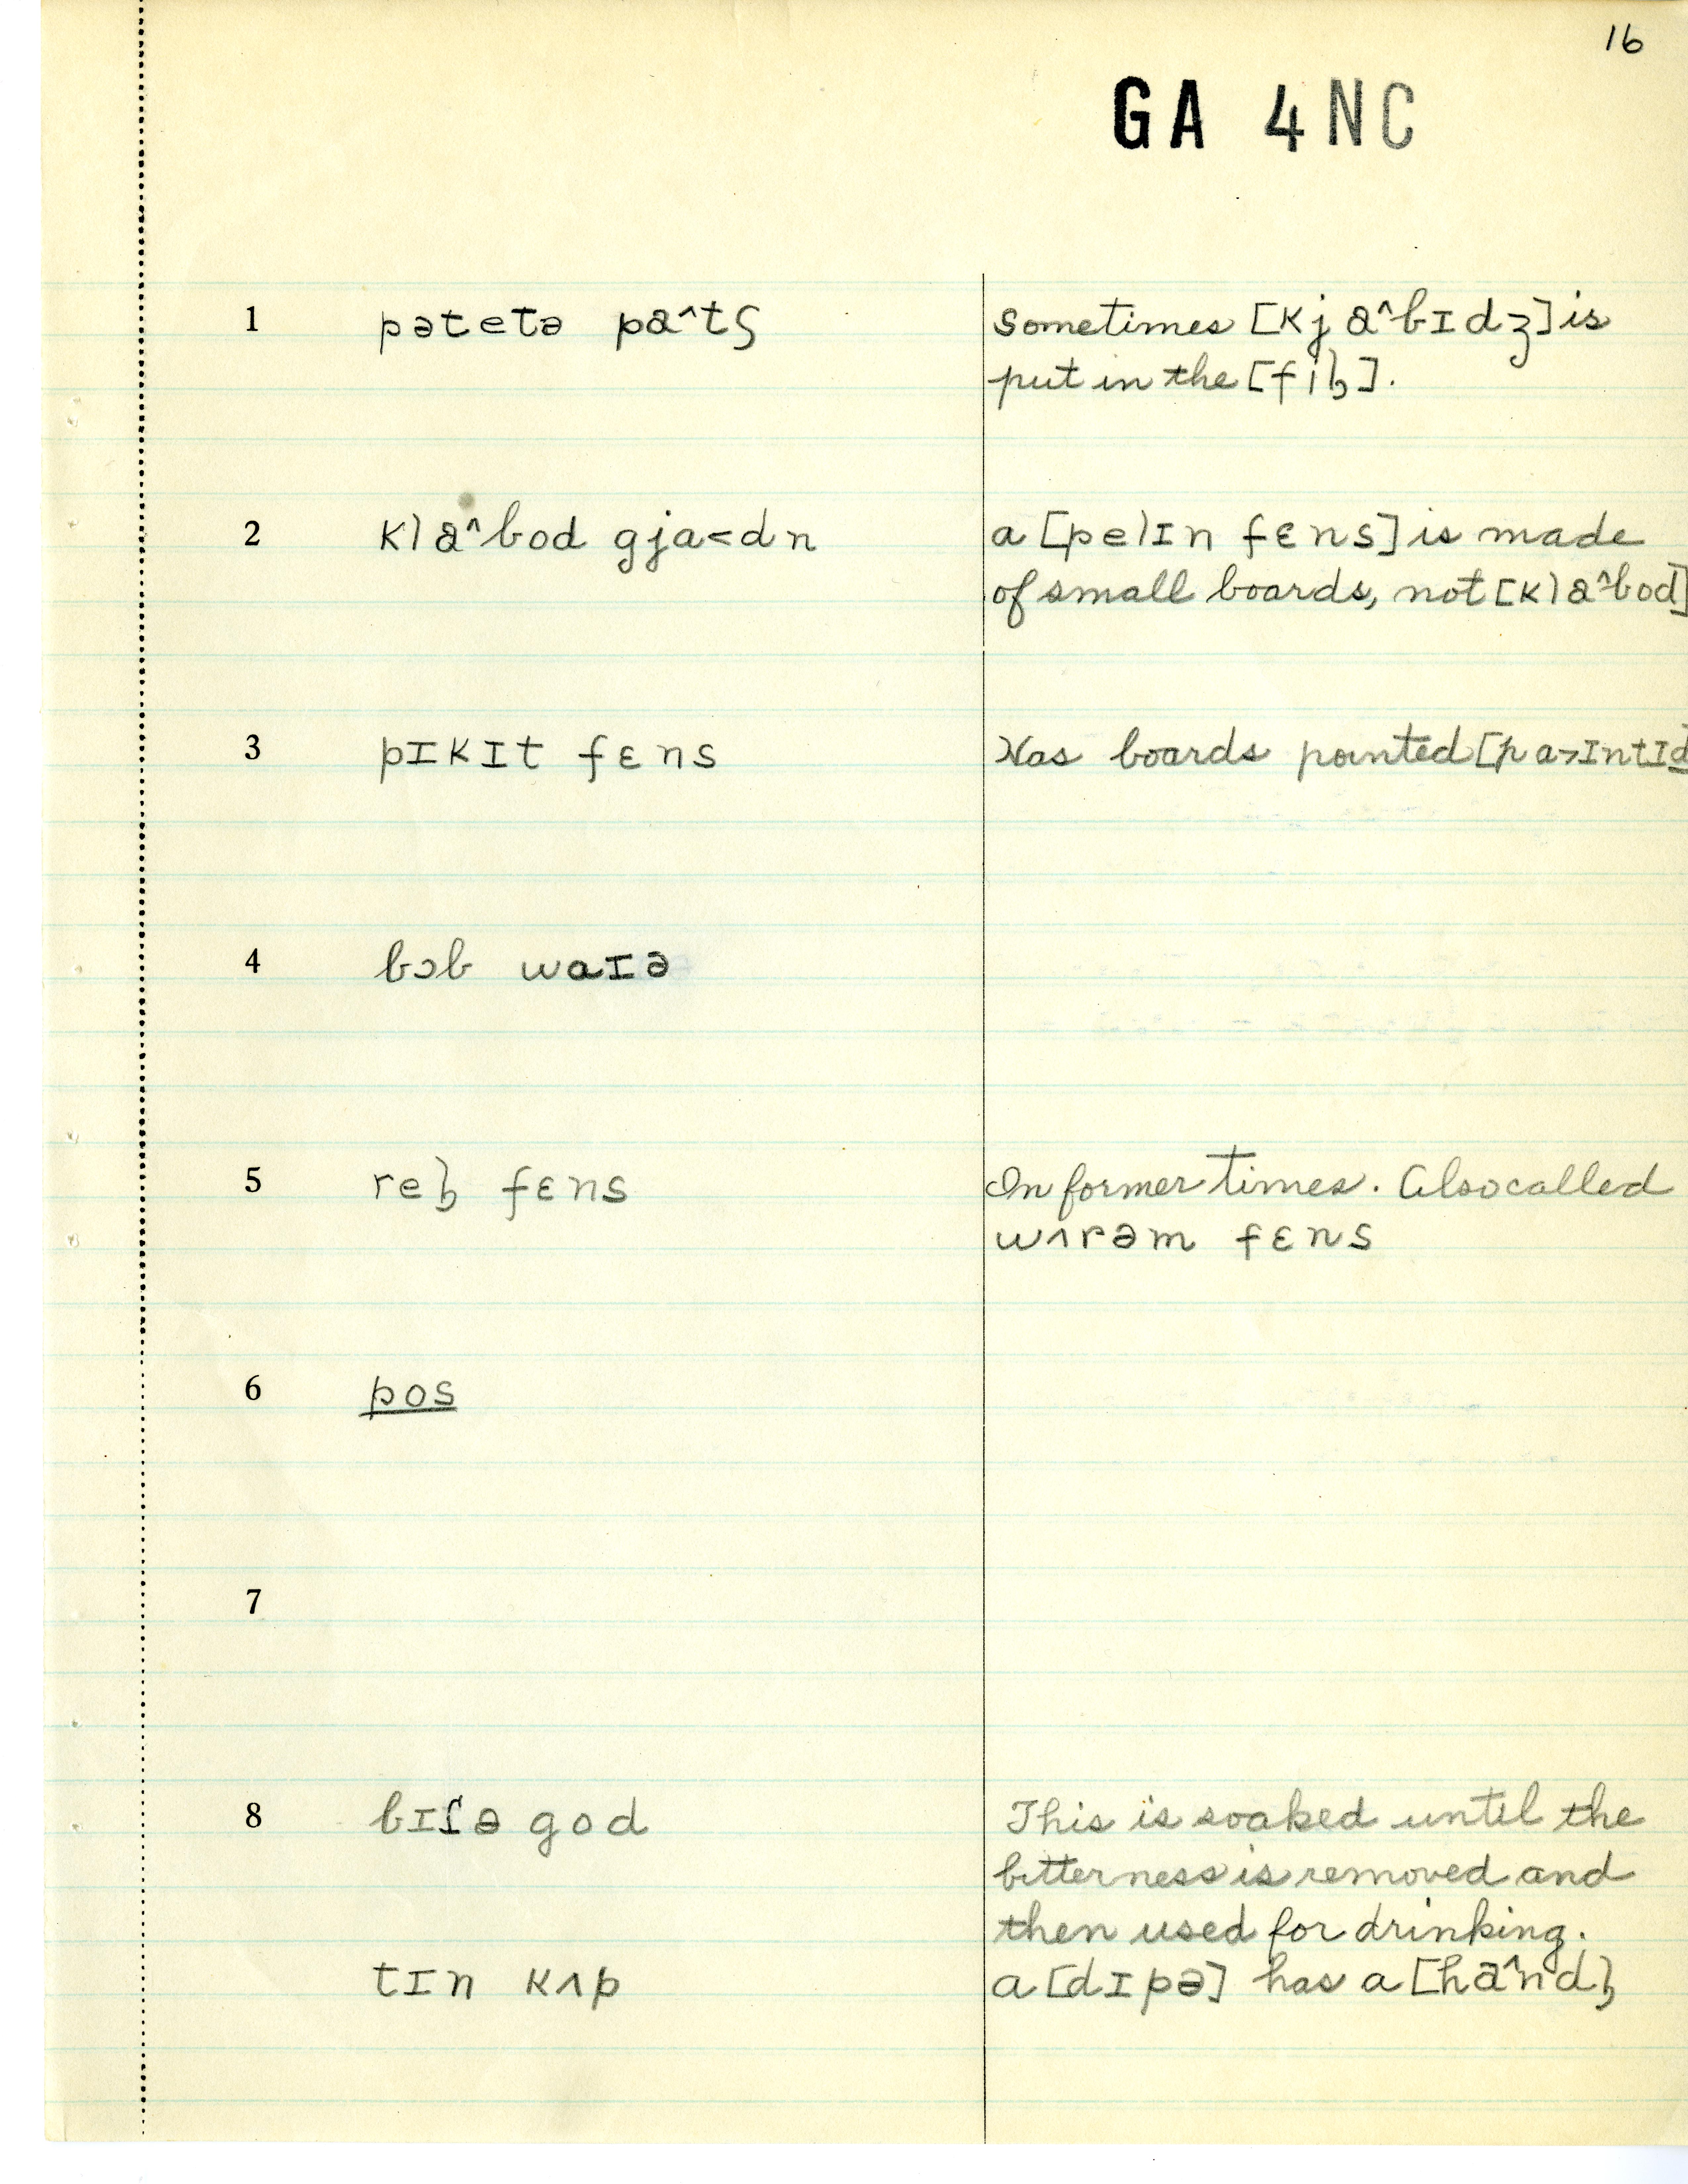 16
GA 4 NC
1 pətetə pa^tʃ Sometimes [kja^bɪdʒ] is
put in the [fiɫ].
2 kla^bod gja<dn a [pelɪn fɛns] is made
of small boards, not [kla^bod]
3 pɪkɪt fɛns Has boards pointed [pa>ɪntɪd
4 bɔb waɪə
5 reɫ fɛns In former times. Also called
wʌrəm fɛns
6 pos
7
8 bɪɾə god This is soaked until the
bitterness is removed and
then used for drinking.
tɪn kʌp a [dɪpə] has a [ha^ndɫ